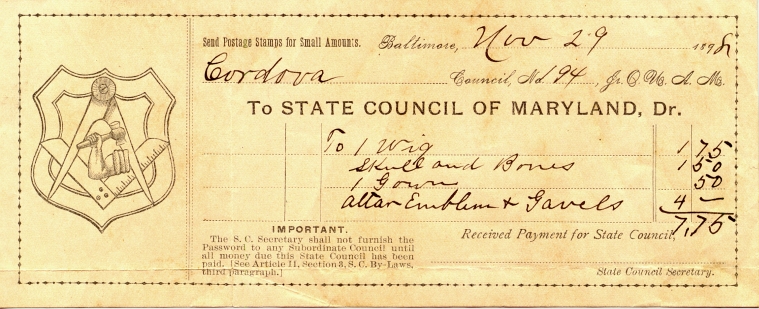 Send Postage Stamps for Small Amounts. Baltimore, Nov 29 1898
Cordova Council, No. 194, Jr. O. U. A. M.
To STATE COUNCIL OF MARYLAND, Dr.
To 1 Wig 1 75
Skull and Bones 1 50
1 Gown 50
Altar Emblem & Gavels 4 —
7,75
IMPORTANT.
The S. C. Secretary shall not furnish the
Password to any Subordinate Council until
all money due this State Council has been
paid. [See Article II, Section 3, S. C. By-Laws,
third paragraph.]
Received Payment for State Council,
State Council Secretary.